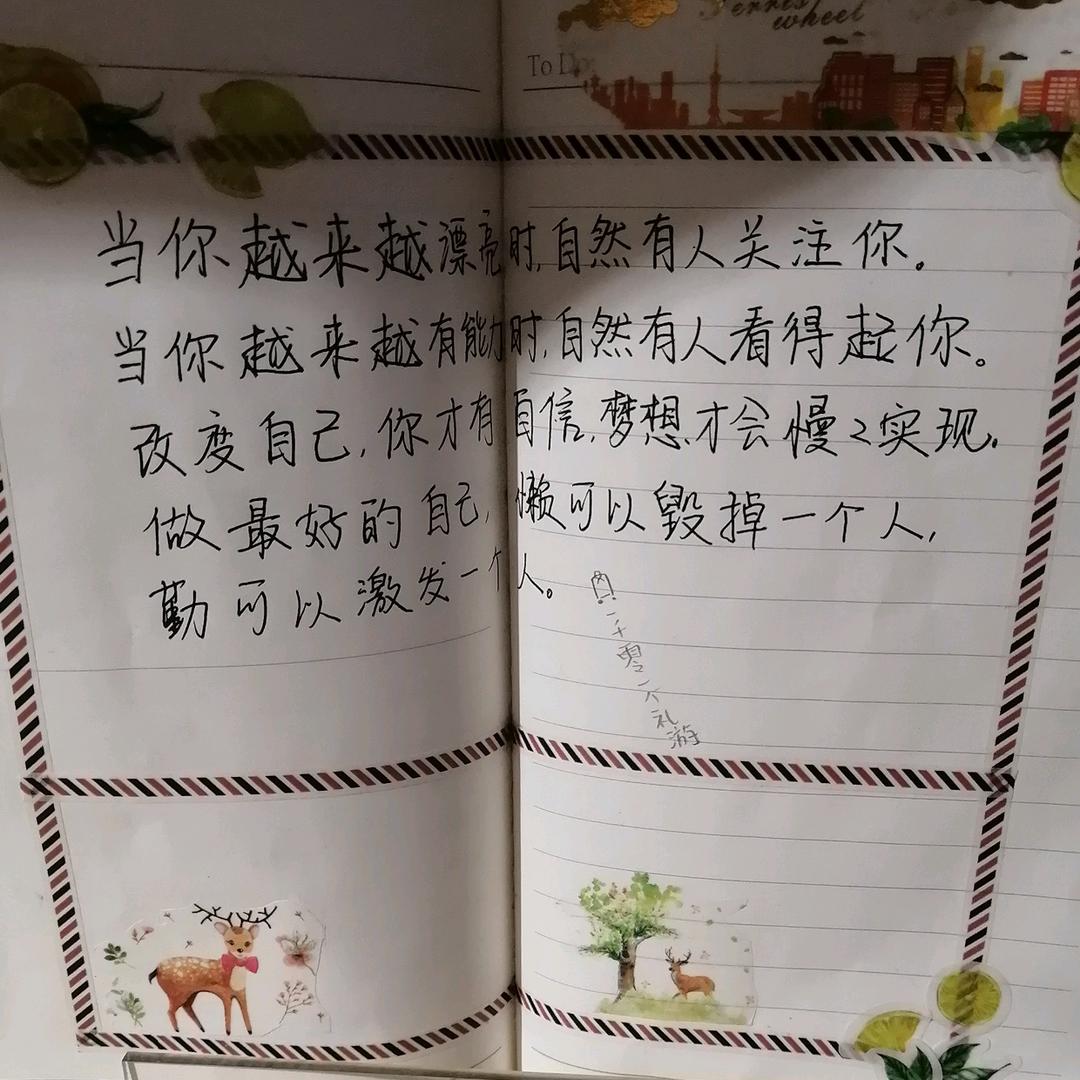 Ferris
wheel
To Do
当你越来越漂亮时,自然有人关注你。
当你越来越有能力时,自然有人看得起你。
改度自己,你才有自信,梦想才会慢々实现.
做最好的自己,懒可以毁掉一个人,
勤可以激发一个人。
一千零一个礼
游